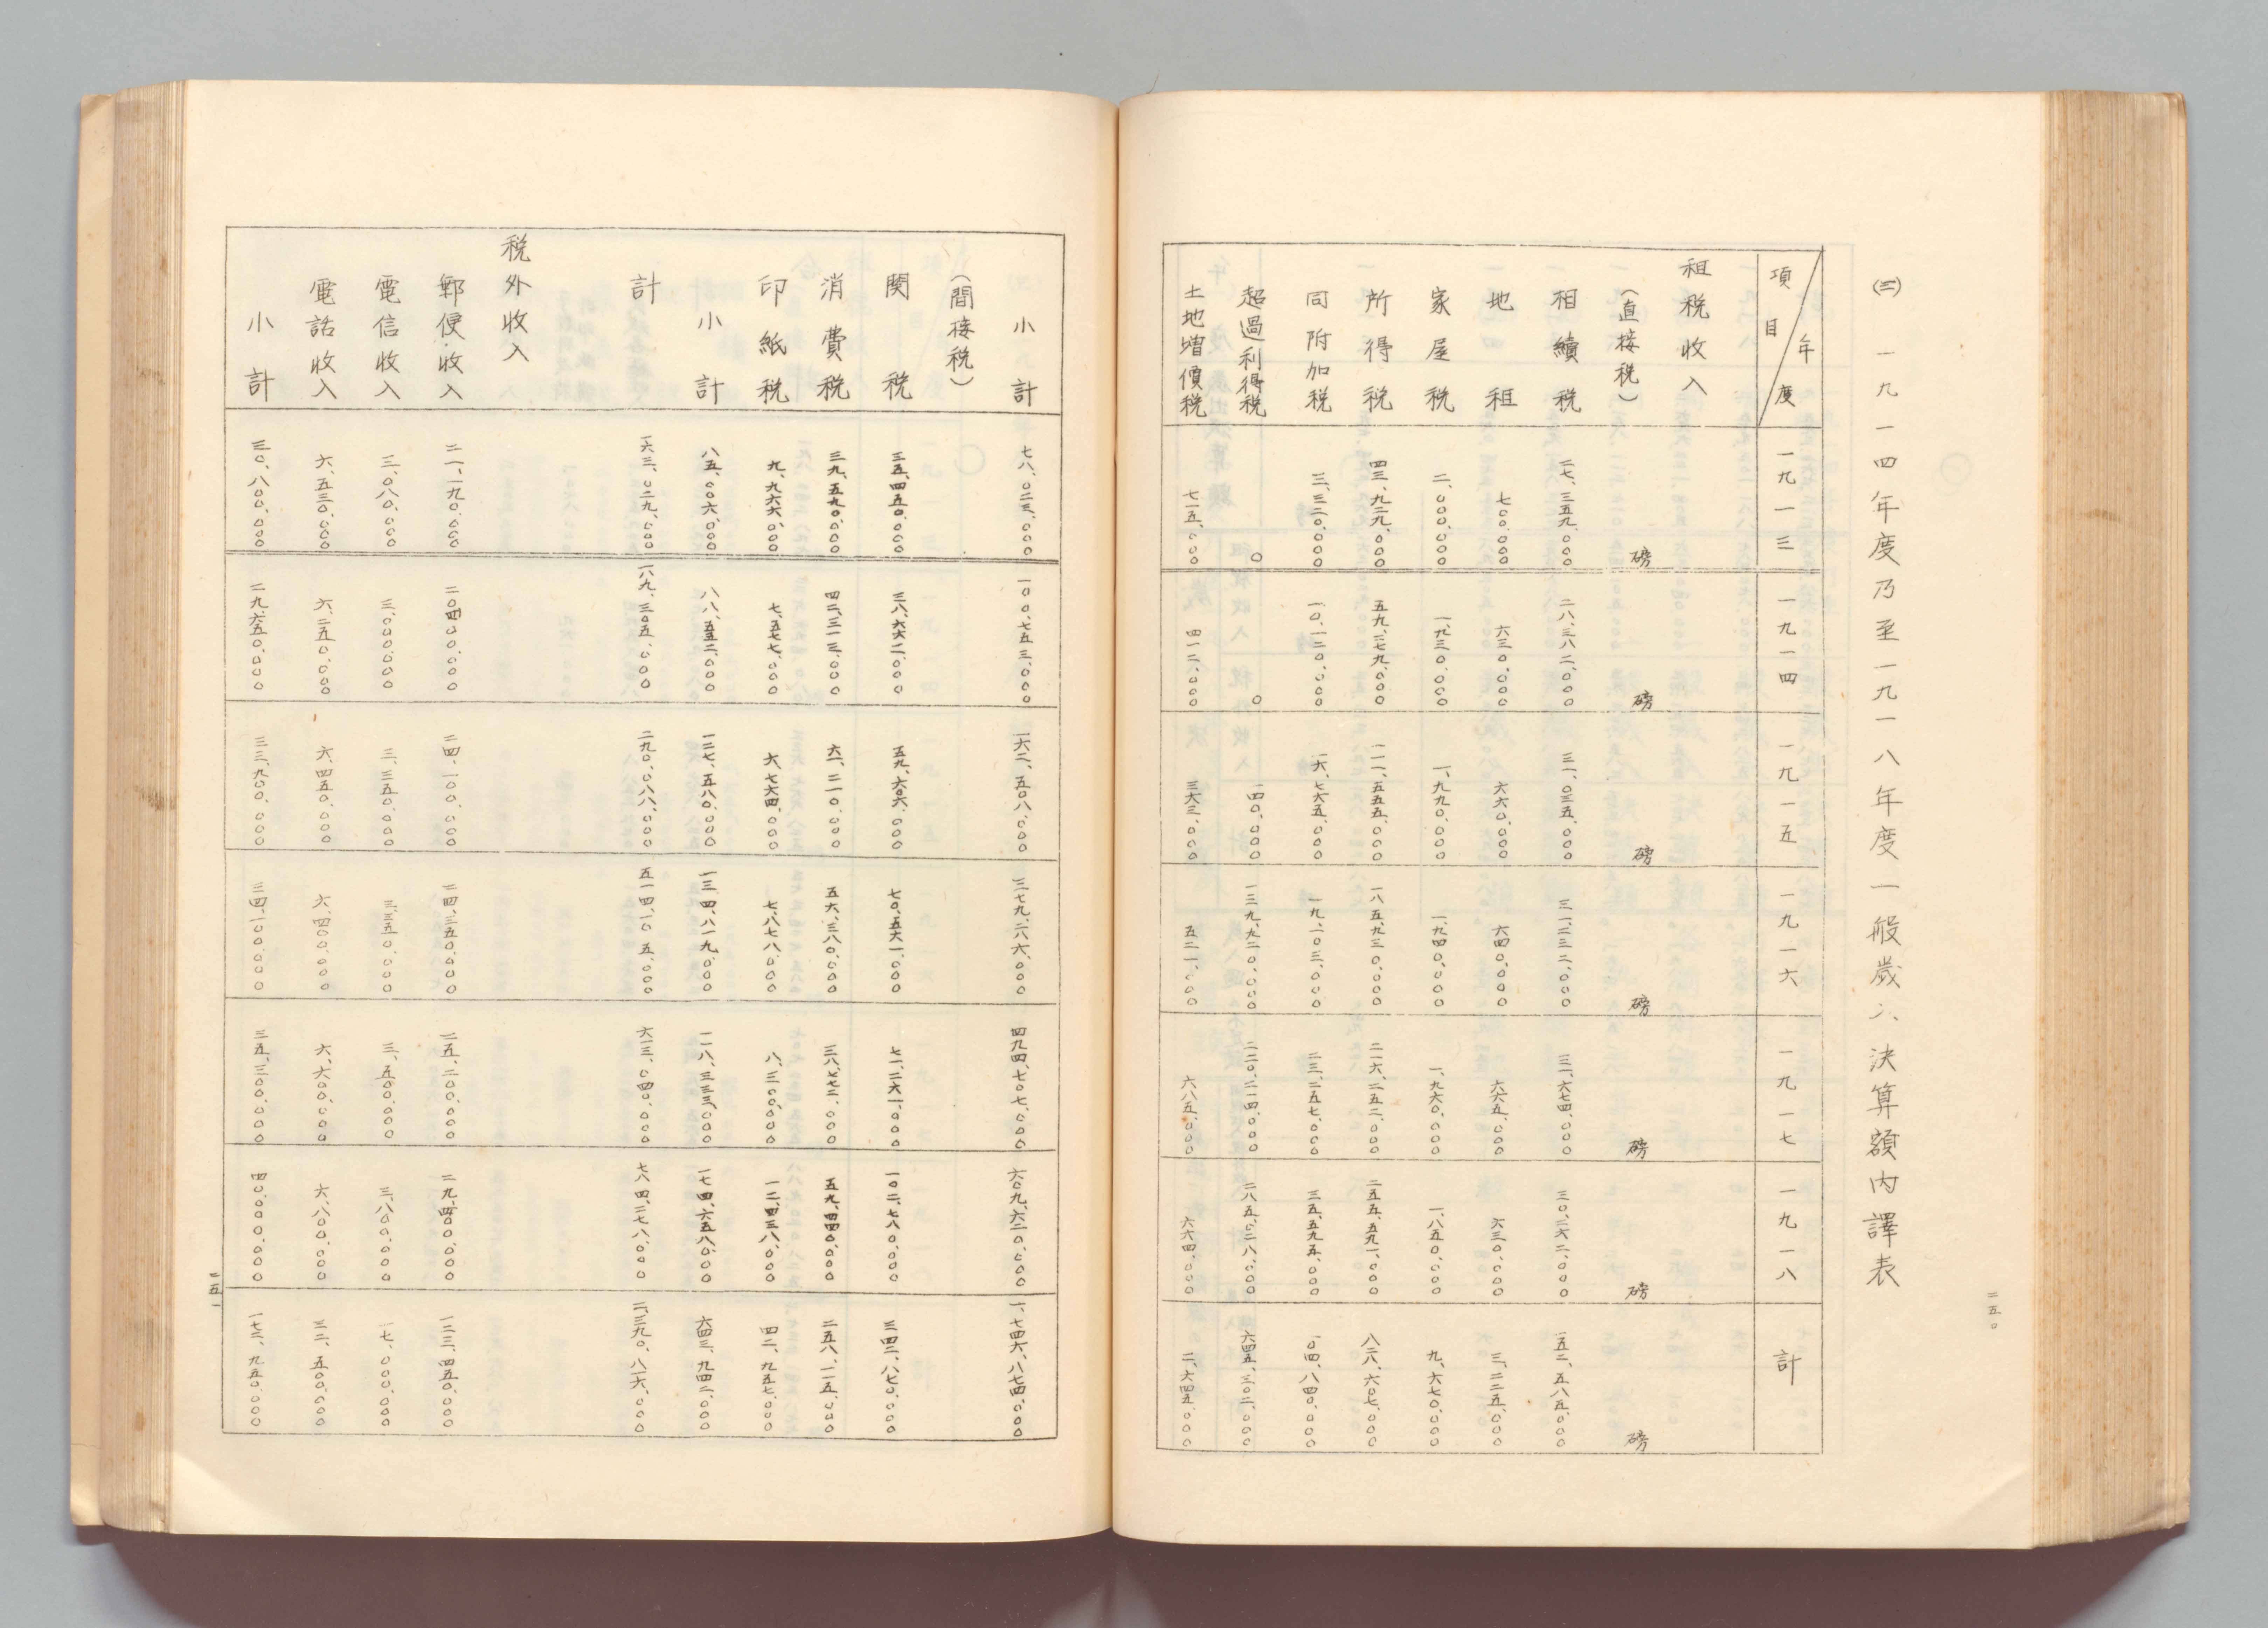 二五〇
㈢ 一九一四年度乃至一九一八年度一般歳入決算額内譯表
年度 項目 一九一三 一九一四 一九一五 一九一六 一九一七 一九一八 計
租税收入
(直接税) 磅 磅 磅 磅 磅 磅 磅
相續税 二七、三五九、〇〇〇 二八、三八二、〇〇〇 三一、〇三五、〇〇〇 三一、二三二、〇〇〇 三一、六七四、〇〇〇 三〇、二六二、〇〇〇 一五二、五八五、〇〇〇
地租 七〇〇、〇〇〇 六三〇、〇〇〇 六六〇、〇〇〇 六四〇、〇〇〇 六六五、〇〇〇 六三〇、〇〇〇 三、二二五、〇〇〇
家屋税 二、〇〇〇、〇〇〇 一、九三〇、〇〇〇 一、九九〇、〇〇〇 一、九四〇、〇〇〇 一、九六〇、〇〇〇 一、八五〇、〇〇〇 九、六七〇、〇〇〇
所得税 四三、九二九、〇〇〇 五九、二七九、〇〇〇 一一一、五五五、〇〇〇 一八五、九三〇、〇〇〇 二一六、二五二、〇〇〇 二五五、五九一、〇〇〇 八二八、六〇七、〇〇〇
同附加税 三、三二〇、〇〇〇 一〇、一二〇、〇〇〇 一六、七六五、〇〇〇 一九、一〇三、〇〇〇 二三、二五七、〇〇〇 三五、五九五、〇〇〇 一〇四、八四〇、〇〇〇
超過利得税 〇 〇 一四〇、〇〇〇 一三九、九二〇、〇〇〇 二二〇、二一四、〇〇〇 二八五、〇二八、〇〇〇 六四五、三〇二、〇〇〇
土地増價税 七一五、〇〇〇 四一二、〇〇〇 三六三、〇〇〇 五二一、〇〇〇 六八五、〇〇〇 六六四、〇〇〇 二、六四五、〇〇〇
小計 七八、〇二三、〇〇〇 一〇〇、七五三、〇〇〇 一六二、五〇八、〇〇〇 三七九、二八六、〇〇〇 四九四、七〇七、〇〇〇 六〇九、六二〇、〇〇〇 一、七四六、八七四、〇〇〇
(間接税)
関税 三五、四五〇、〇〇〇 三八、六六二、〇〇〇 五九、六〇六、〇〇〇 七〇、五六一、〇〇〇 七一、二六一、〇〇〇 一〇二、七八〇、〇〇〇 三四二、八七〇、〇〇〇
消費税 三九、五九〇、〇〇〇 四二、三一三、〇〇〇 六一、二一〇、〇〇〇 五六、三八〇、〇〇〇 三八、七七二、〇〇〇 五九、四四〇、〇〇〇 二五八、一一五、〇〇〇
印紙税 九、九六六、〇〇〇 七、五七七、〇〇〇 六、七六四、〇〇〇 七、八七八、〇〇〇 八、三〇〇、〇〇〇 一二、四三八、〇〇〇 四二、九五七、〇〇〇
小計 八五、〇〇六、〇〇〇 八八、五五二、〇〇〇 一二七、五八〇、〇〇〇 一三四、八一九、〇〇〇 一一八、三三三、〇〇〇 一七四、六五八、〇〇〇 六四三、九四二、〇〇〇
計 一六三、〇二九、〇〇〇 一八九、三〇五、〇〇〇 二九〇、〇八八、〇〇〇 五一四、一〇五、〇〇〇 六一三、〇四〇、〇〇〇 七八四、二七八、〇〇〇 二、三九〇、八一六、〇〇〇
税外收入
郵便收入 二一、一九〇、〇〇〇 二〇、四〇〇、〇〇〇 二四、一〇〇、〇〇〇 二四、三五〇、〇〇〇 二五、二〇〇、〇〇〇 二九、四〇〇、〇〇〇 一二三、四五〇、〇〇〇
電信收入 三、〇八〇、〇〇〇 三、〇〇〇、〇〇〇 三、三五〇、〇〇〇 三、三五〇、〇〇〇 三、五〇〇、〇〇〇 三、八〇〇、〇〇〇 一七、〇〇〇、〇〇〇
電話收入 六、五三〇、〇〇〇 六、二五〇、〇〇〇 六、四五〇、〇〇〇 六、四〇〇、〇〇〇 六、六〇〇、〇〇〇 六、八〇〇、〇〇〇 三二、五〇〇、〇〇〇
小計 三〇、八〇〇、〇〇〇 二九、六五〇、〇〇〇 三三、九〇〇、〇〇〇 三四、一〇〇、〇〇〇 三五、三〇〇、〇〇〇 四〇、〇〇〇、〇〇〇 一七二、九五〇、〇〇〇
二五一